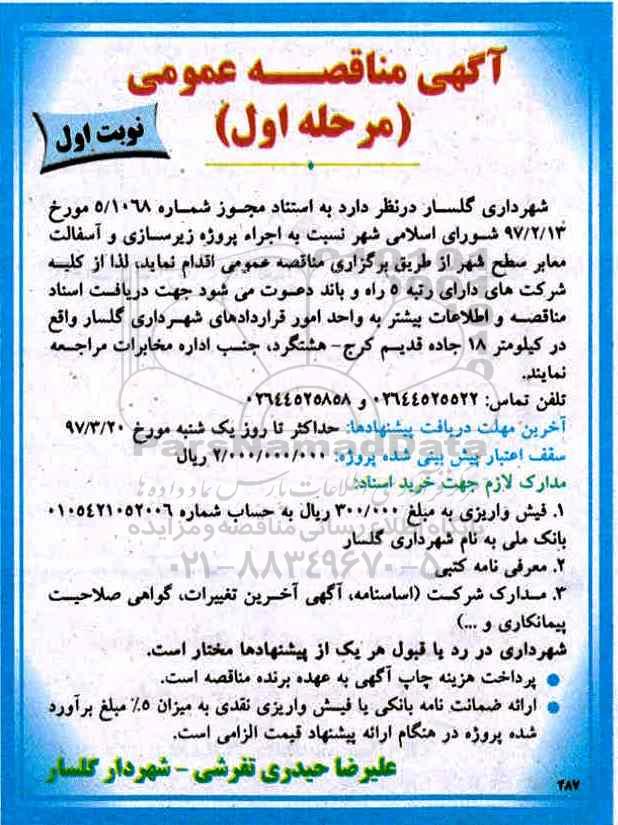 آگهی مناقصه عمومی
(مرحله اول)
نوبت اول
شهرداری گلسار درنظر دارد به استناد مجوز شماره ۵/۱۰۶۸ مورخ
۹۷/۲/۱۳ شورای اسلامی شهر نسبت به اجراء پروژه زیرسازی و آسفالت
معابر سطح شهر از طریق برگزاری مناقصه عمومی اقدام نماید، لذا از کلیه
شرکت های دارای رتبه ۵ راه و باند دعوت می شود جهت دریافت اسناد
مناقصه و اطلاعات بیشتر به واحد امور قراردادهای شهرداری گلسار واقع
در کیلومتر ۱۸ جاده قدیم کرج- هشتگرد، جنب اداره مخابرات مراجعه
نمایند.
تلفن تماس: ۰۲۶۴۴۵۲۵۵۲۲ و ۰۲۶۴۴۵۲۵۸۵۸
آخرین مهلت دریافت پیشنهادها: حداکثر تا روز یک شنبه مورخ ۹۷/۳/۲۰
ParsNamadData
سقف اعتبار پیش بینی شده پروژه: ۲/۰۰۰/۰۰۰/۰۰۰ ریال
مدارک لازم جهت خرید اسناد:
۱. فیش واریزی به مبلغ ۳۰۰/۰۰۰ ریال به حساب شماره ۰۱۰۵۴۲۱۰۵۲۰۰۶
پایگاه اطلاع رسانی مناقصه و مزایده
بانک ملی به نام شهرداری گلسار
۰۲۱-۸۸۳۴۹۶۷۰-۵
۲. معرفی نامه کتبی
۳. مدارک شرکت (اساسنامه، آگهی آخرین تغییرات، گواهی صلاحیت
پیمانکاری و ...)
شهرداری در رد یا قبول هر یک از پیشنهادها مختار است.
پرداخت هزینه چاپ آگهی به عهده برنده مناقصه است.
ارائه ضمانت نامه بانکی یا فیش واریزی نقدی به میزان ۵٪ مبلغ برآورد
شده پروژه در هنگام ارائه پیشنهاد قیمت الزامی است.
علیرضا حیدری تفرشی - شهردار گلسار
۴۸۷